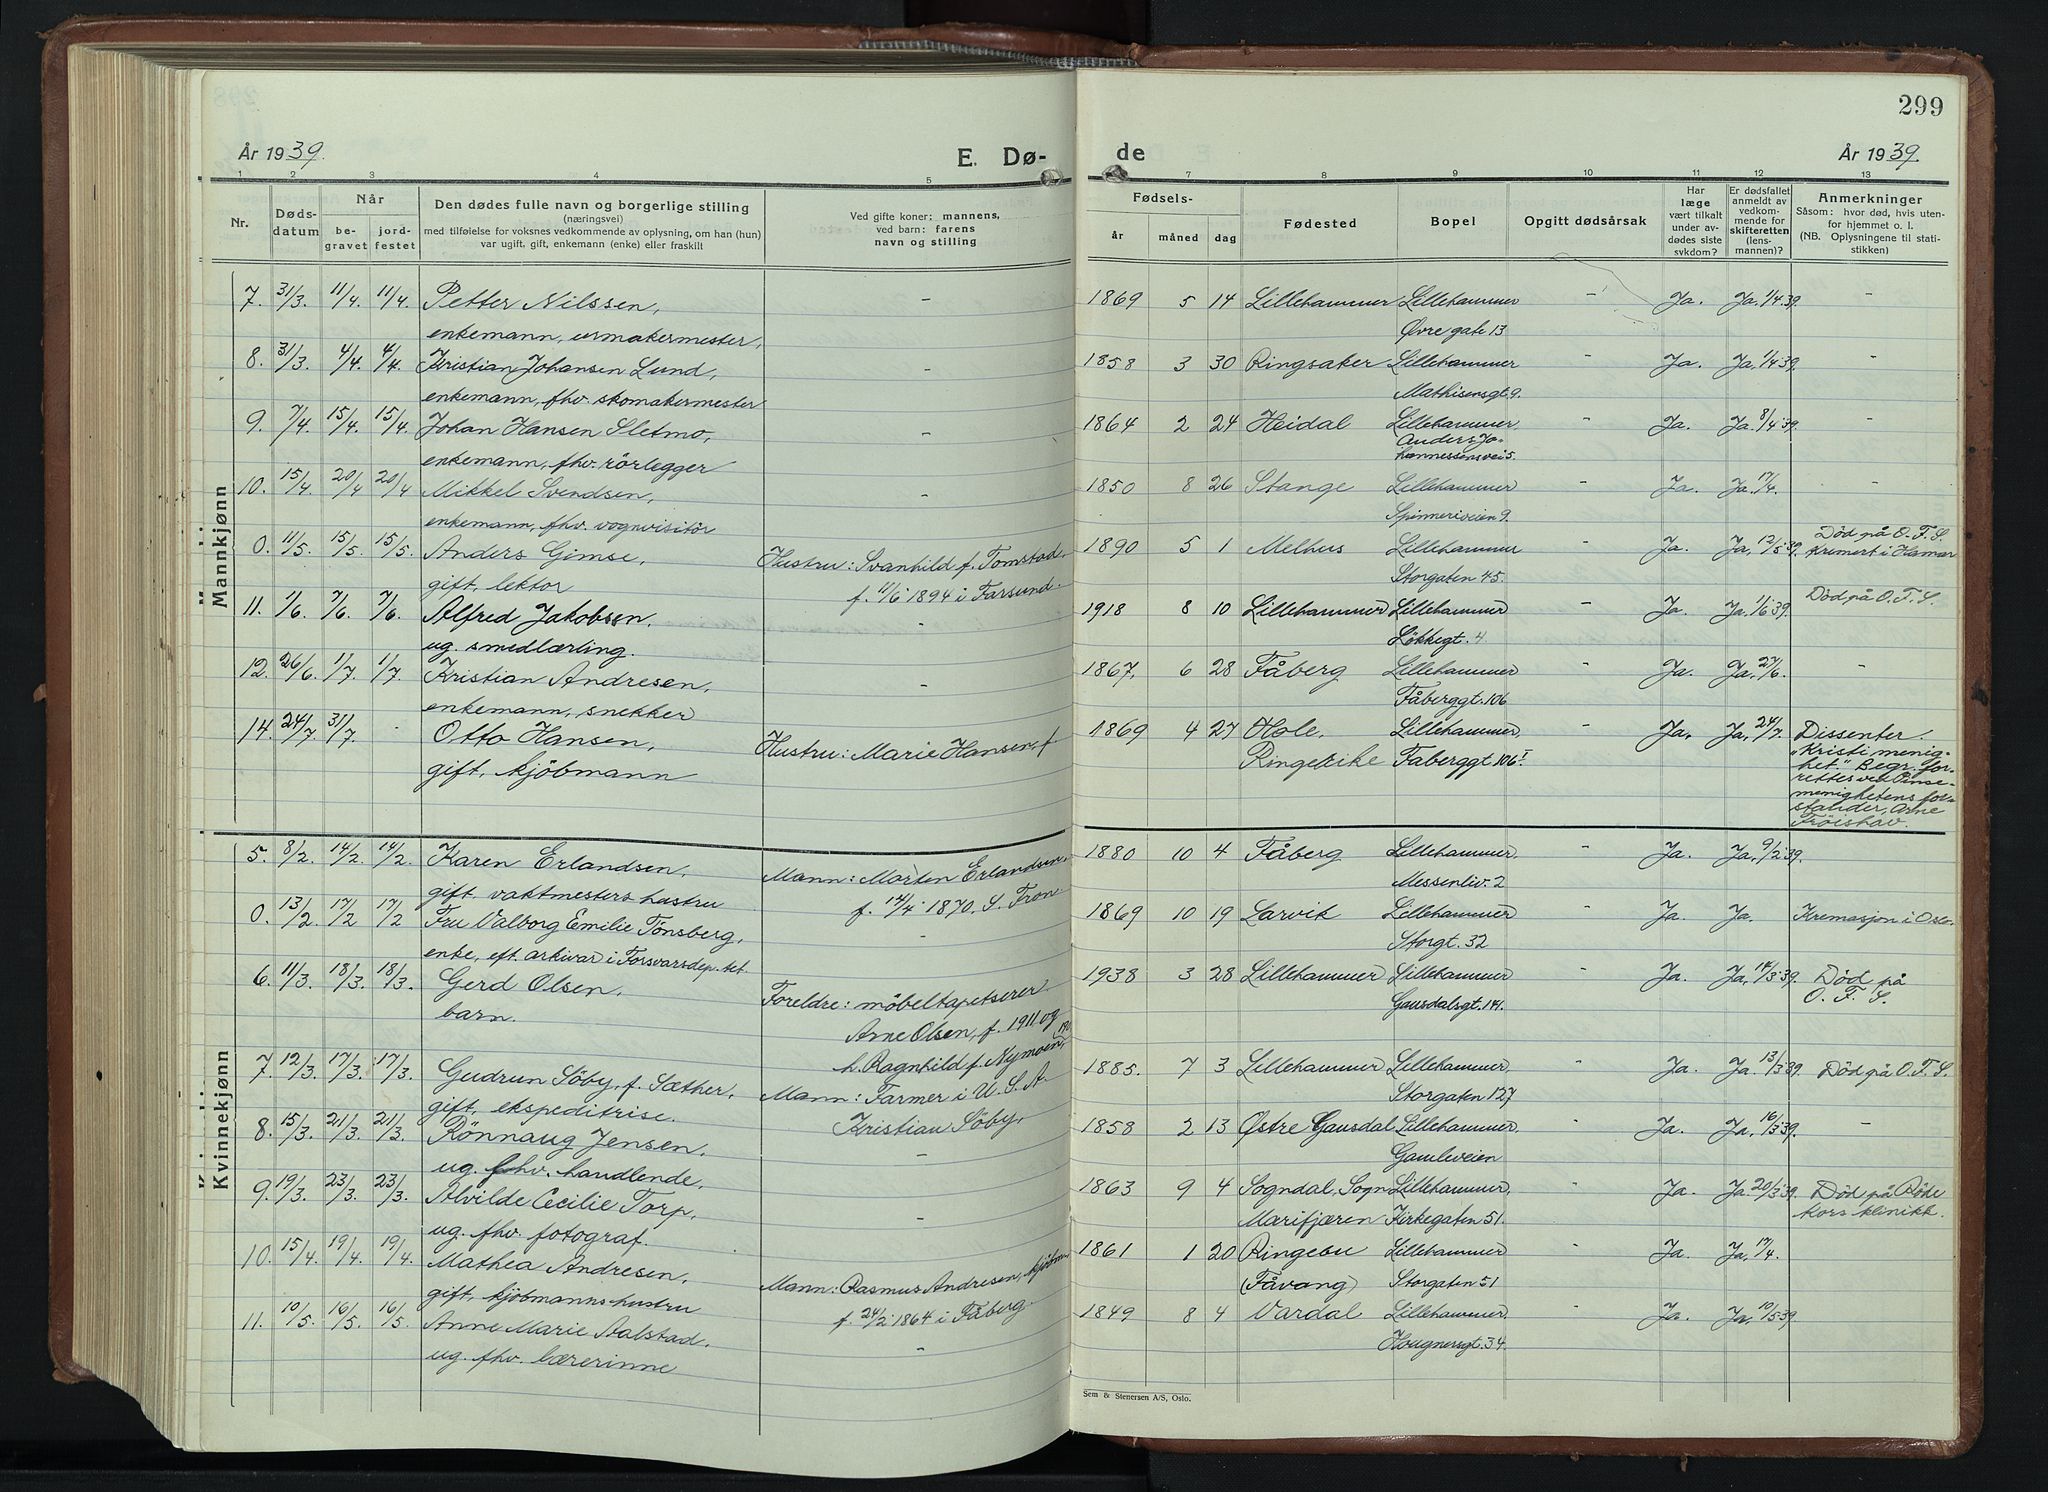 299
År 1939.
E. Dø-
de
År 1939.
1 2 3 4 5 7 8 9 10 11 12 13
Nr.
Døds-
datum
Når
be-
gravet
jord-
festet
Den dødes fulle navn og borgerlige stilling
(næringsvei)
med tilføielse for voksnes vedkommende av oplysning, om han (hun)
var ugift, gift, enkemann (enke) eller fraskilt
Ved gifte koner: mannens,
ved barn: farens
navn og stilling
Fødsels-
år måned dag
Fødested
Bopel
Opgitt dødsårsak
Har
læge
vært tilkalt
under av-
dødes siste
sykdom?
Er dødsfallet
anmeldt av
vedkom-
mende for
skifteretten
(lens-
mannen)?
Anmerkninger
Såsom: hvor død, hvis uten-
for hjemmet o. l.
(NB. Oplysningene til stati-
stikken)
Mannkjønn
7. 31/3. 11/4. 11/4. Petter Nilssen, - 1869 5 14 Lillehammer Lillehammer - Ja. Ja. 1/4 39. -
enkemann, urmakermester, Øvre gate 13
8. 31/3. 4/4. 4/4. Kristian Johansen Lund, - 1858 3 30 Ringsaker Lillehammer - Ja. Ja. 1/4 39. -
enkemann, fhv. skomakermester Mathisensgt. 9.
9. 7/4. 15/4. 15/4. Johan Hansen Sletmo, - 1864 2 24 Heidal Lillehammer. - Ja. Ja. 8/4 39. -
enkemann, fhv. rörlegger Anders Jo-
hannessensvei 5.
10. 15/4. 20/4 20/4 Mikkel Svendsen, - 1850 8 26 Stange Lillehammer - Ja. Ja. 17/4. -
enkemann, fhv. vognvisitör Spinneriveien 9.
0. 11/5. 15/5. 15/5. Anders Gimse, Hustru: Svanhild f. Tomstad, 1890 5 1 Melhus Lillehammer - Ja. Ja, 12/5 39. Död på O. F. S.
Kremert i Hamar
gift, lektor f. 11/6 1894 i Farsund. Storgaten 45.
11. 1/6. 7/6. 7/6. Alfred Jakobsen. - 1918 8 10 Lillehammer Lillehammer - Ja. Ja. 1/6 39. Död på O. F. S.
ug. smedlærling. Lökkegt. 4.
12. 26/6. 1/7. 1/7. Kristian Andresen, - 1867. 6 28 Fåberg Lillehammer - Ja. Ja. 27/6. -
enkemann, snekker Fåberggt. 106
14. 24/7. 31/7. - Otto Hansen, Hustru: Marie Hansen, f 1869 4 27 Hole. Lillehammer. - Ja. Ja, 24/7. Dissenter.
gift, kjöbmann Ringerike Fåberggt 106 I
"Kristi menig-
het." Begr. for-
rettes ved Pinse-
menighetens for-
stander, Arne
Fröishav.
Kvinnekjønn
5. 8/2. 14/2. 14/2. Karen Erlandsen, Mann: Morten Erlandsen, 1880 10 4 Fåberg Lillehammer. - Ja. Ja, 9/2 39.
gift. vaktmesters hustru f. 14/4 1870. S. Fron Messenliv. 2
0. 13/2. 17/2 17/2 Fru Valborg Emilie Tönsberg, - 1869 10 19 Larvik Lillehammer - Ja. Ja. Kremasjon i Oslo.
enke, eft. arkivar i Forsvarsdep.tet. Storgt. 32
6. 11/3. 18/3. 18/3. Gerd Olsen, Foreldre: möbeltapetserer 1938 3 28 Lillehammer Lillehammer - Ja. Ja, 14/3 39. Död på
O. F. S.
barn. Arne Olsen, f. 1911 og Gausdalsgt. 141.
h. Ragnhild f. Nymoen,
7. 12/3. 17/3. 17/3. Gudrun Söby, f. Sæther, Mann: Farmer i U. S. A. 1885. 7 3 Lillehammer Lillehammer. - Ja. Ja. 13/3 39. Död på O. F. S.
gift, ekspeditrise. Kristian Söby, Storgaten 127
8. 15/3. 21/3. 21/3. Rönnaug Jensen, - 1858 2 13 Østre Gausdal Lillehammer. Ja. Ja, 16/3 39. -
ug. fhv. handlende. Gamleveien
9. 19/3. 23/3. 23/3. Alvilde Cecilie Torp, - 1863 9 4 Sogndal, Sogn Lillehammer, Ja. Ja. 20/3 39. Död på Röde
Kors klinikk.
ug. fhv. fotograf. Marifjæren Kirkegaten 51.
10. 15/4. 19/4. 19/4. Mathea Andresen, Mann: Rasmus Andresen, kjöbm. 1861 1 20 Ringebu Lillehammer Ja. Ja, 17/4.
gift, kjöbmanns hustru f. 24/2 1864 i Fåberg. (Fåvang) Storgaten 51
11. 10/5. 16/5. 16/5. Anne Marie Aalstad. - 1849 8 4 Vardal Lillehammer. Ja. Ja, 10/5 39.
ug. fhv. lærerinne Hougnersgt. 34.
Sem & Stenersen A/S, Oslo.